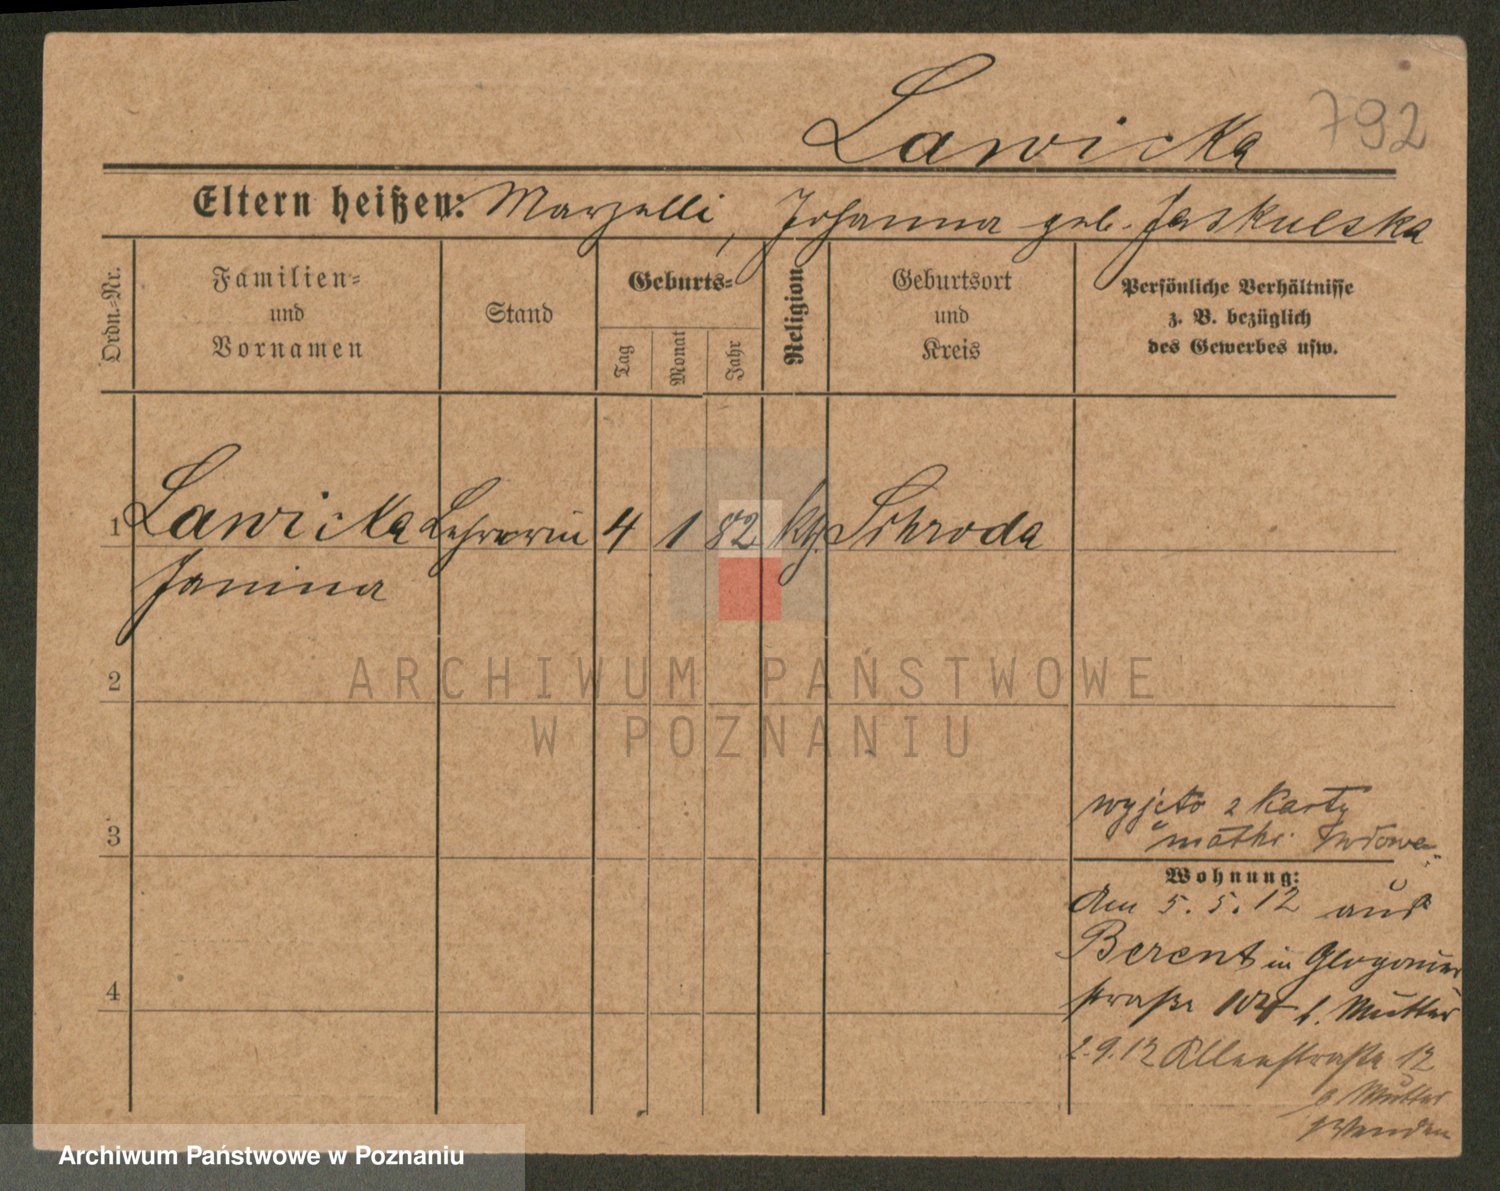 Lawicka 792
Eltern heißen: Marzelli, Johanna geb. Jaskulska
Ordn.-Nr.
Familien-
und
Vornamen
Stand
Geburts-
Tag
Monat
Jahr
Religion
Geburtsort
und
Kreis
Persönliche Verhältnisse
z. B. bezüglich
des Gewerbes usw.
1 Lawicka Lehrerin 4 1 82 kth. Schroda
Janina
2
3
4
wyjęto z karty
matki
Wohnung:
Am 5. 5. 12 aus
Berent in Glogauer
straße 104 b. Mutter
2.9.12 Allenstraße 12
b Mutter
ARCHIWUM PAŃSTWOWE
W POZNANIU
Archiwum Państwowe w Poznaniu